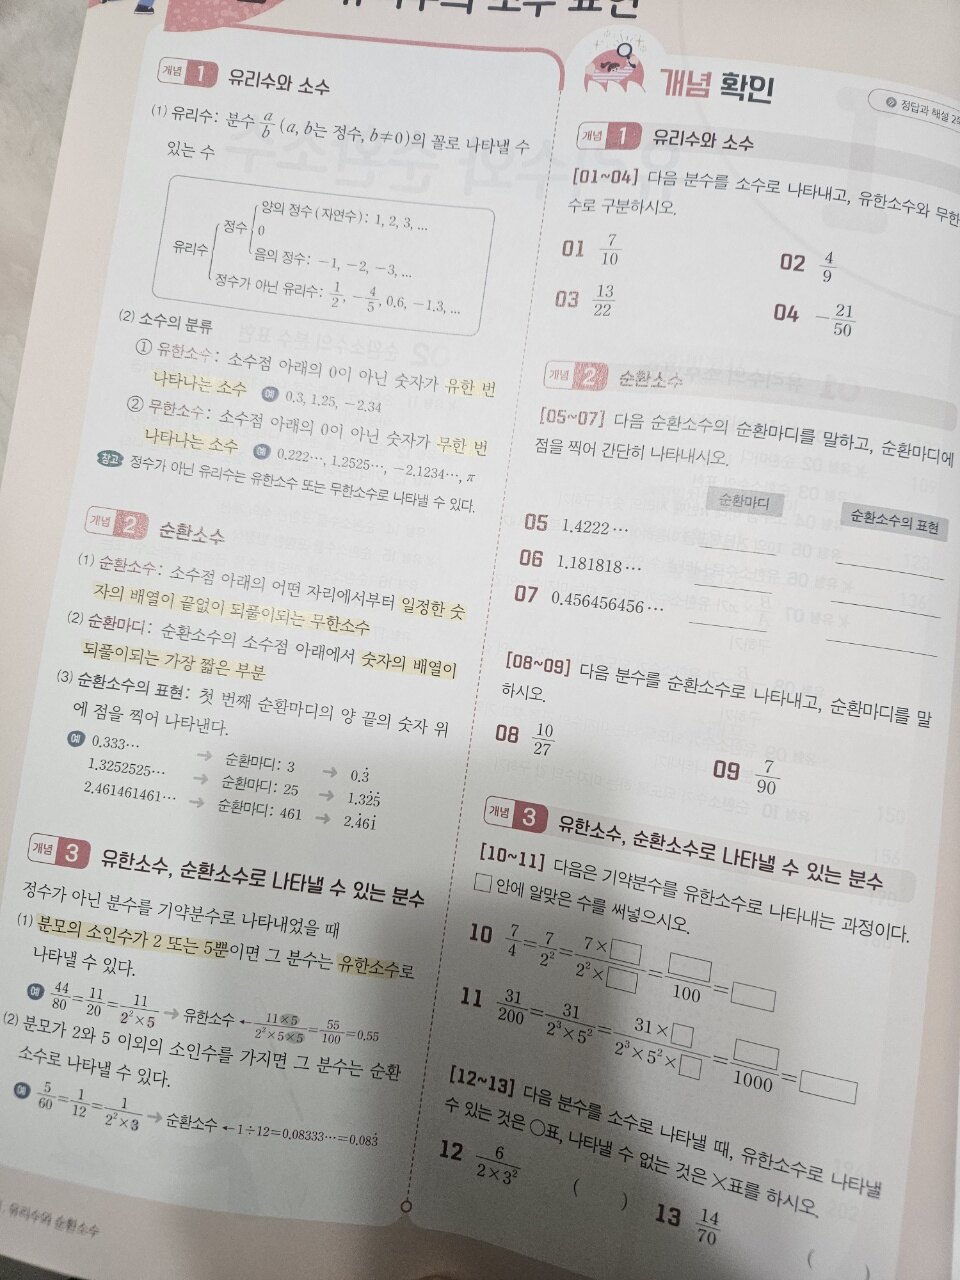 유리수의 소수 표현
개념 1 유리수와 소수
(1) 유리수: 분수 a/b (a, b는 정수, b≠0)의 꼴로 나타낼 수
있는 수
양의 정수(자연수): 1, 2, 3, …
정수
0
유리수
음의 정수: -1, -2, -3, …
정수가 아닌 유리수: 1/2, -4/5, 0.6, -1.3, …
(2) 소수의 분류
① 유한소수: 소수점 아래의 0이 아닌 숫자가 유한 번
나타나는 소수 예 0.3, 1.25, -2.34
② 무한소수: 소수점 아래의 0이 아닌 숫자가 무한 번
나타나는 소수 예 0.222…, 1.2525…, -2.1234…, π
참고 정수가 아닌 유리수는 유한소수 또는 무한소수로 나타낼 수 있다.
개념 2 순환소수
(1) 순환소수: 소수점 아래의 어떤 자리에서부터 일정한 숫
자의 배열이 끝없이 되풀이되는 무한소수
(2) 순환마디: 순환소수의 소수점 아래에서 숫자의 배열이
되풀이되는 가장 짧은 부분
(3) 순환소수의 표현: 첫 번째 순환마디의 양 끝의 숫자 위
에 점을 찍어 나타낸다.
예 0.333… → 순환마디: 3 → 0.3̇
1.3252525… → 순환마디: 25 → 1.32̇5̇
2.461461461… → 순환마디: 461 → 2.4̇61̇
개념 3 유한소수, 순환소수로 나타낼 수 있는 분수
정수가 아닌 분수를 기약분수로 나타내었을 때
(1) 분모의 소인수가 2 또는 5뿐이면 그 분수는 유한소수로
나타낼 수 있다.
예 44/80=11/20=11/(2²×5) → 유한소수 ← (11×5)/(2²×5×5)=55/100=0.55
(2) 분모가 2와 5 이외의 소인수를 가지면 그 분수는 순환
소수로 나타낼 수 있다.
예 5/60=1/12=1/(2²×3) → 순환소수 ← 1÷12=0.08333…=0.083̇
1. 유리수와 순환소수
개념 확인
정답과 해설 2
개념 1 유리수와 소수
[01~04] 다음 분수를 소수로 나타내고, 유한소수와 무한
수로 구분하시오.
01 7/10 02 4/9
03 13/22 04 -21/50
개념 2 순환소수
[05~07] 다음 순환소수의 순환마디를 말하고, 순환마디에
점을 찍어 간단히 나타내시오.
순환마디 순환소수의 표현
05 1.4222…
06 1.181818…
07 0.456456456…
[08~09] 다음 분수를 순환소수로 나타내고, 순환마디를 말
하시오.
08 10/27 09 7/90
개념 3 유한소수, 순환소수로 나타낼 수 있는 분수
[10~11] 다음은 기약분수를 유한소수로 나타내는 과정이다.
□ 안에 알맞은 수를 써넣으시오.
10 7/4=7/2²=(7×□)/(2²×□)=□/100=□
11 31/200=31/(2³×5²)=(31×□)/(2³×5²×□)=□/1000=□
[12~13] 다음 분수를 소수로 나타낼 때, 유한소수로 나타낼
수 있는 것은 ○표, 나타낼 수 없는 것은 ×표를 하시오.
12 6/(2×3²) ( ) 13 14/70 ( )